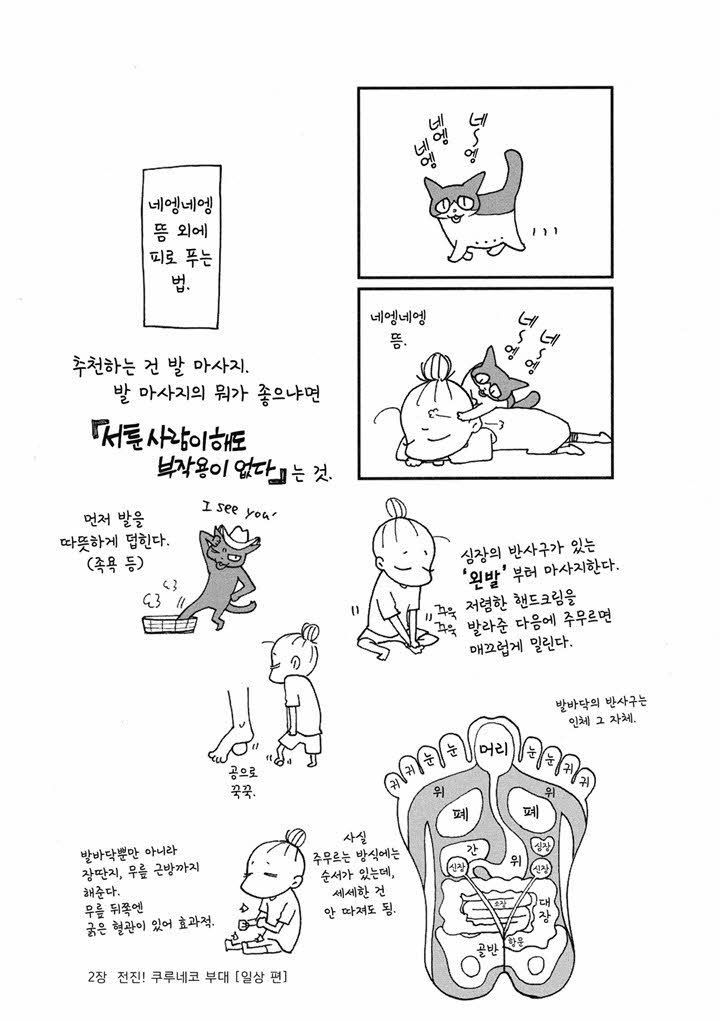 네엥
네엥
네~엥
네엥네엥
뜸.
네~엥
네~엥
네엥네엥
뜸 외에
피로 푸는
법.
추천하는 건 발 마사지.
발 마사지의 뭐가 좋으냐면
『서툰 사람이 해도
부작용이 없다』는 것.
먼저 발을
따뜻하게 덥힌다.
(족욕 등)
I see you~
심장의 반사구가 있는
'왼발' 부터 마사지한다.
저렴한 핸드크림을
발라준 다음에 주무르면
매끄럽게 밀린다.
꾸욱
꾸욱
공으로
꾹꾹.
발바닥의 반사구는
인체 그 자체.
귀 귀 눈 눈 머리 눈 눈 귀 귀
위 위
폐 폐
간 위 심장
심장 심장
소장 대장
골반 항문
발바닥뿐만 아니라
장딴지, 무릎 근방까지
해준다.
무릎 뒤쪽엔
굵은 혈관이 있어 효과적.
사실
주무르는 방식에는
순서가 있는데,
세세한 건
안 따져도 됨.
2장 전진! 쿠루네코 부대 [일상 편]